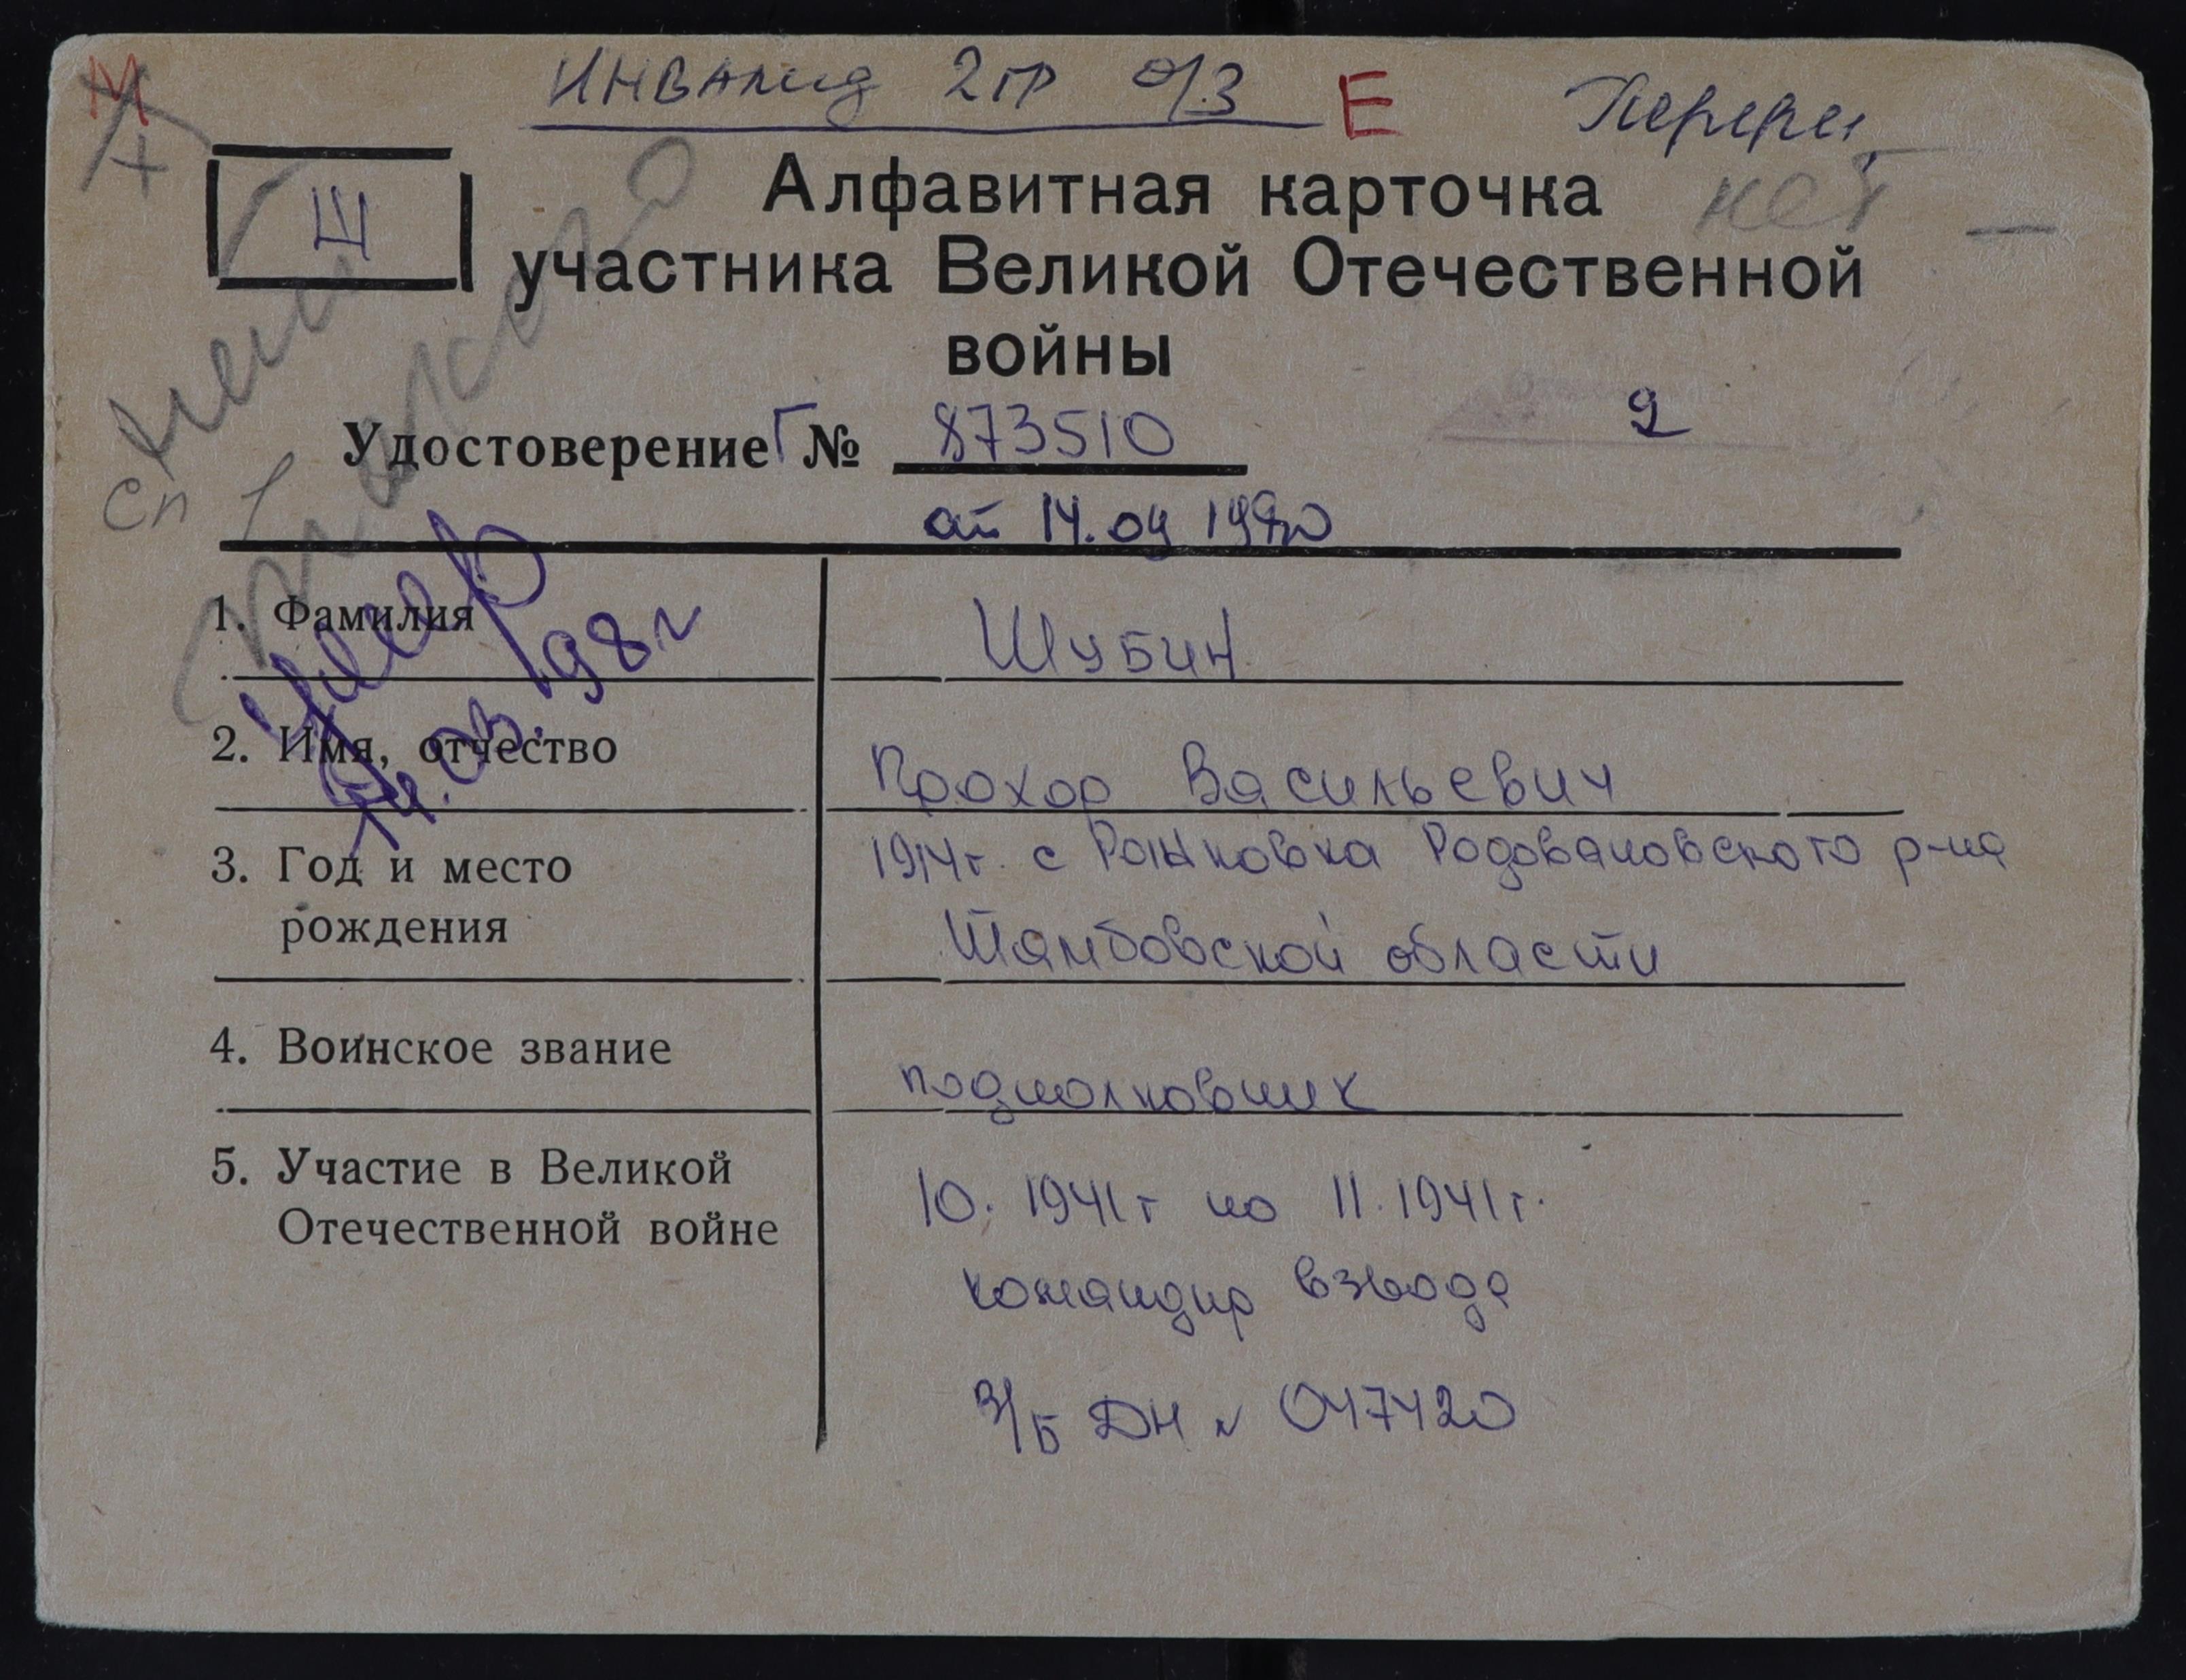 М
Инвалид 2гр о/з Е Перерег.
нет —
Ш
Алфавитная карточка
участника Великой Отечественной
войны
2
Удостоверение Г № 873510
от 14.04 1980
сп 1
умер
14.03.98г
1. Фамилия Шубин
2. Имя, отчество Прохор Васильевич
3. Год и место 1914г. с р-на
рождения Тамбовской области
4. Воинское звание подполковник
5. Участие в Великой 10. 1941г по 11. 1941г.
Отечественной войне
командир взвода
В/Б ДН № 047420